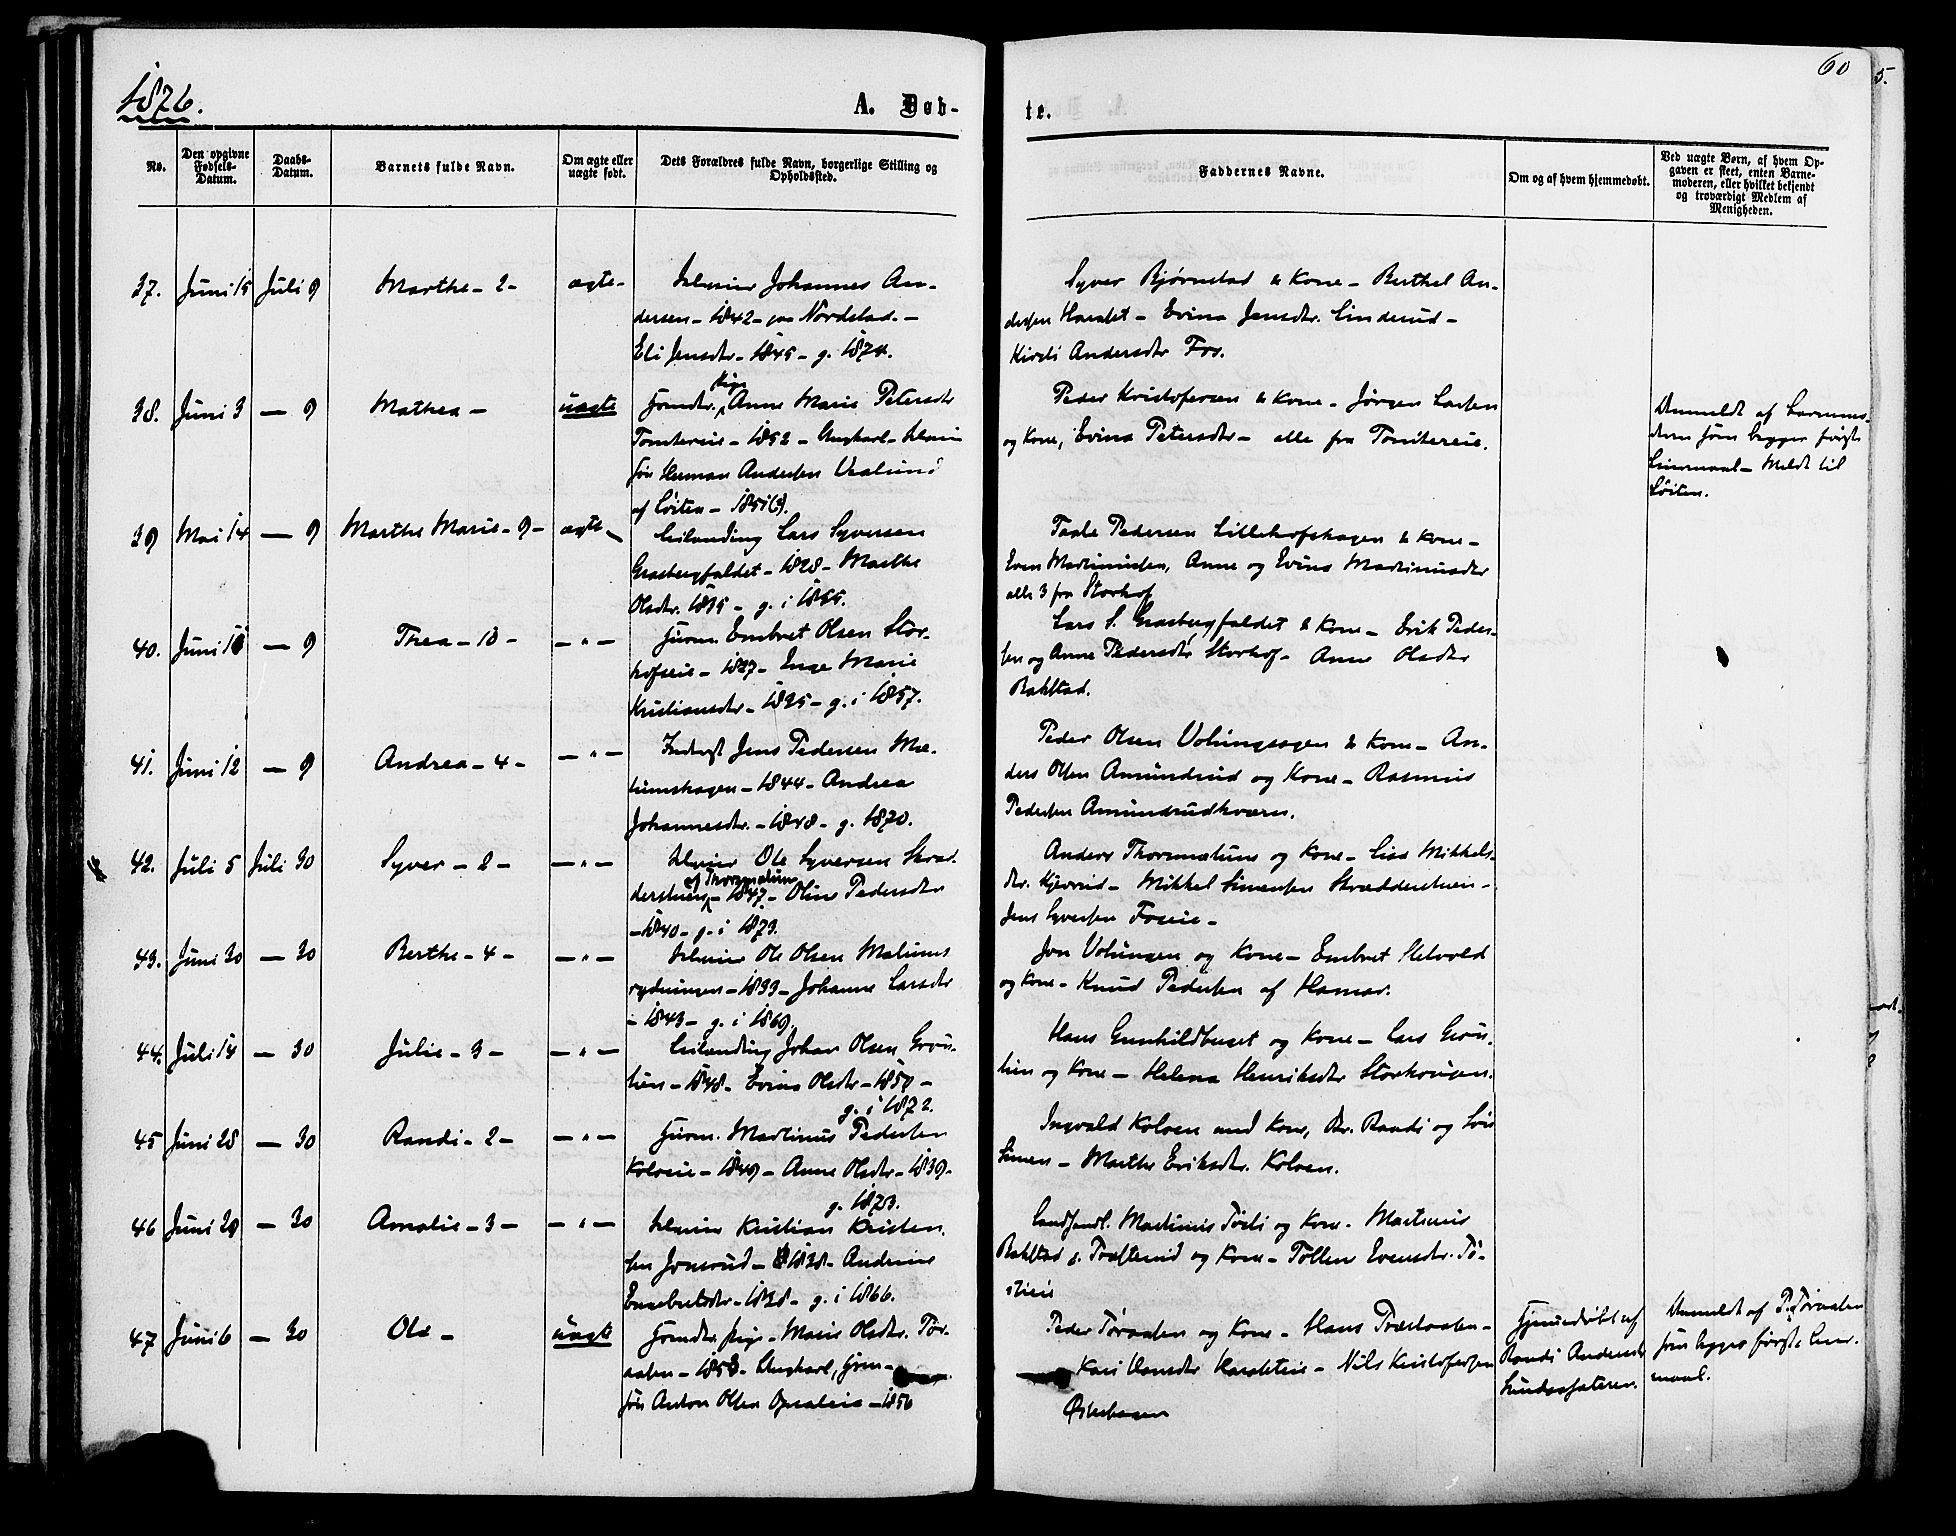 1876.
A. Døb-
te.
60
5.
No.
Den opgivne Fødsels-Datum.
Daabs-Datum.
Barnets fulde Navn.
Om ægte eller uægte født.
Dets Forældres fulde Navn, borgerlige Stilling og Opholdssted.
Faddernes Navne.
Om og af hvem hjemmedøbt.
Ved uægte Børn, af hvem Op-
gaven er skeet, enten Barne-
moderen, eller hvilket bekjendt
og troværdigt Medlem af
Menigheden.
37. Juni 15 Juli 9 Marthe - 2 - ægte -
Johannes An-
dersen - 1842 - paa Nordstad. -
Eli Jensdtr. - 1845 - g. 1874.
Syver Bjørnstad & Kone - Berthel An-
dersen Haratet - Evina Jensdtr. Linderud -
Kirsti Andersdtr Fos.
38. Juni 3 - 9 Mathea - uægte
Pige
Anne Marie Petersdtr
Tomtereie - 1852 - Ungkarl -
Søn Herman Andersen Vaalund
af Løiten - 1851(?).
Peder Kristofersen & Kone - Jørgen Larsen
og Kone, Evina Petersdtr - alle fra Tomtereie.
Anmeldt af Barnemo-
deren som begges første
Leiermaal - Meldt til
Løiten.
39 Mai 14 - 9 Marthe Marie - 9 - ægte -
Leilending Lars Syversen
Graabergfaldet - 1828 - Marthe
Olsdtr. 1835 - g. i 1855.
Taale Pedersen Lillehofshagen & Kone -
Even Martinusen, Anne og Evina Martinusdtr
alle 3 fra Storhof
40. Juni - 9 Thea - 10 - - " -
Huum. Embret Olsen Stor-
hofseie - 1827 - Inge Marie
Kristiansdtr - 1835 - g. i 1857.
Lars S. Graabergfaldet & Kone - Erik Peder-
sen og Anne Pedersdtr Storhof - Anne Olsdtr
Bakstad.
41. Juni 12 - 9 Andrea - 4 - - " -
Inderst Jens Pedersen Mæ-
lumshagen - 1844 - Andrea
Johannesdtr. - 1848 - g. 1870.
Peder Olsen Volungsagen & Kone - An-
ders Olsen Amundrud og Kone - Rasmus
Pedersen Amundrudkværn.
42. Juli 5 Juli 30 Syver - 2 - - " -
Ole Syversen Skræd-
af Thorsmælum
derstuen - 1847 - Oline Pedersdtr
- 1840 - g. i 1873.
Anders Thorsmælum og Kone - Lisa Mikkels-
dtr. - Mikkel Simensen Skrædderstuen -
Jens Syversen Foseie -
43. Juni 30 - 30 Berthe - 4 - - " -
Ole Olsen Mælums
rydningen - 1833 - Johanne Larsdtr
- 1843 - g. i 1869.
Jon Volungen og Kone - Embret Helvold
og Kone - Knud Pedersen af Hamar.
44. Juli 14 - 30 Julie - 3 - - " -
Leilending Johan Olsen Grøn-
lien - 1848 - Evina Olsdtr - 1850 -
g. i 1872.
Hans Gunhildbuset og Kone - Lars Grøn-
lien og Kone - Helena Henriksdtr Storhougen.
45 Juni 28 - 30 Randi - 2 - - " -
Huum. Martinus Pedersen
Kolveie - 1849 - Anne Olsdtr - 1839 -
g. 1873.
Ingvald Kolven med Kone, Dtr. Randi og Søn
Simen - Marthe Eriksdtr. Kolven.
46 Juni 29 - 30 Amalie - 3 - - " -
Kristian Kristen-
sen Jonsrud - 1838 - Andrine
Engebretsdtr - 1838 - g. i 1866.
Landhandl. Martinus Tøsti og Kone - Martinus
Bakstad og Kone - Tollen Evensdtr. Tø-
stieie
47 Juni 6 - 30 Ole - uægte
Pige - Marie Olsdtr. Tør-
aasen - 1853 - Ungkarl,
Søn Anton Olsen Opsaleie - 1856
Peder Tøraasen og Kone - Hans Træetaasen -
Kari Hansdtr Haratteie - Nils Kristofersen
Østerhagen
Hjemmedøbt af
Randi Andersdtr
Lundssæteren.
Anmeldt af P. Tøraasen
som begges første Leier-
maal.